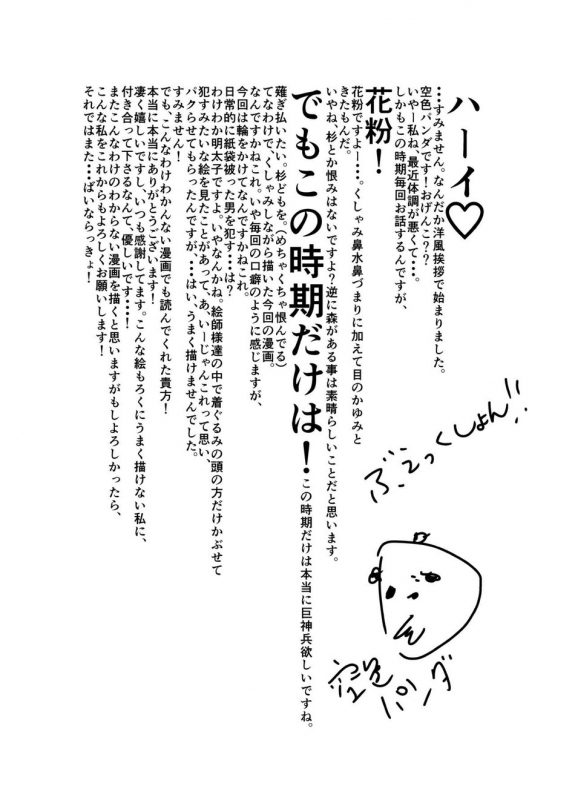 ハーイ♡
・・・すみません。なんだか洋風挨拶で始まりました。
空色パンダです！おげんこ？？
いやー私ね、最近体調が悪くて・・・。
しかもこの時期毎回お話するんですが、
花粉！
花粉ですよー・・・。くしゃみ鼻水鼻づまりに加えて目のかゆみと
きたもんだ。
いやね、杉とか恨みはないですよ？逆に森がある事は素晴らしいことだと思います。
でもこの時期だけは！この時期だけは本当に巨神兵欲しいですね。
薙ぎ払いたい。杉どもを。（めちゃくちゃ恨んでる）
てなわけで、くしゃみしながら描いた今回の漫画。
なんですかねこれ。いや毎回の口癖のように感じますが、
今回は輪をかけてなんですかねこれ。
日常的に紙袋被った男を犯す・・・は？
わけわか明太子ですよ。いやなんかね。絵師様達の中で着ぐるみの頭の方だけかぶせて
犯すみたいな絵を見たことがあって、あ、いーじゃんこれって思い、
パクらせてもらったんですが、・・・はい、うまく描けませんでした。
すみません！
でも、こんなわけわかんない漫画でも読んでくれた貴方！
本当に本当にありがとうございます！
凄く嬉しいですし、いつも感謝してます。こんな絵もろくにうまく描けない私に、
付き合って下さるなんて、優しいです・・・！
またこんなわけのわからない漫画を描くと思いますがもしよろしかったら、
こんな私をこれからもよろしくお願いします！
それではまた・・・ばいならっきょ！
ぶえっくしょん!!
空色パンダ